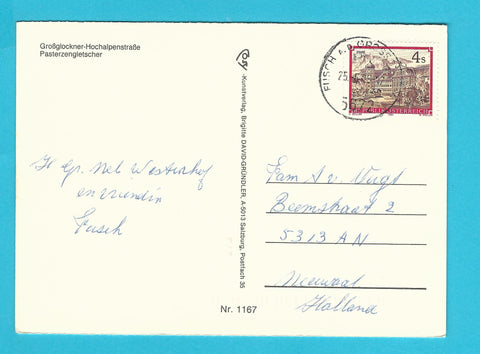 Großglockner-Hochalpenstraße
Pasterzengletscher
H. Gr. Nel Westerhof
en vriendin
Fusch
-Kunstverlag, Brigitte DAVID-GRÜNDLER, A-5013 Salzburg, Postfach 35
Nr. 1167
FUSCH A. D. GROSS
25.
5672
4 S
REPUBLIK ÖSTERREICH
Fam A v Vugt
Beemstraat 2
5313 AN
Nieuwaal
Holland